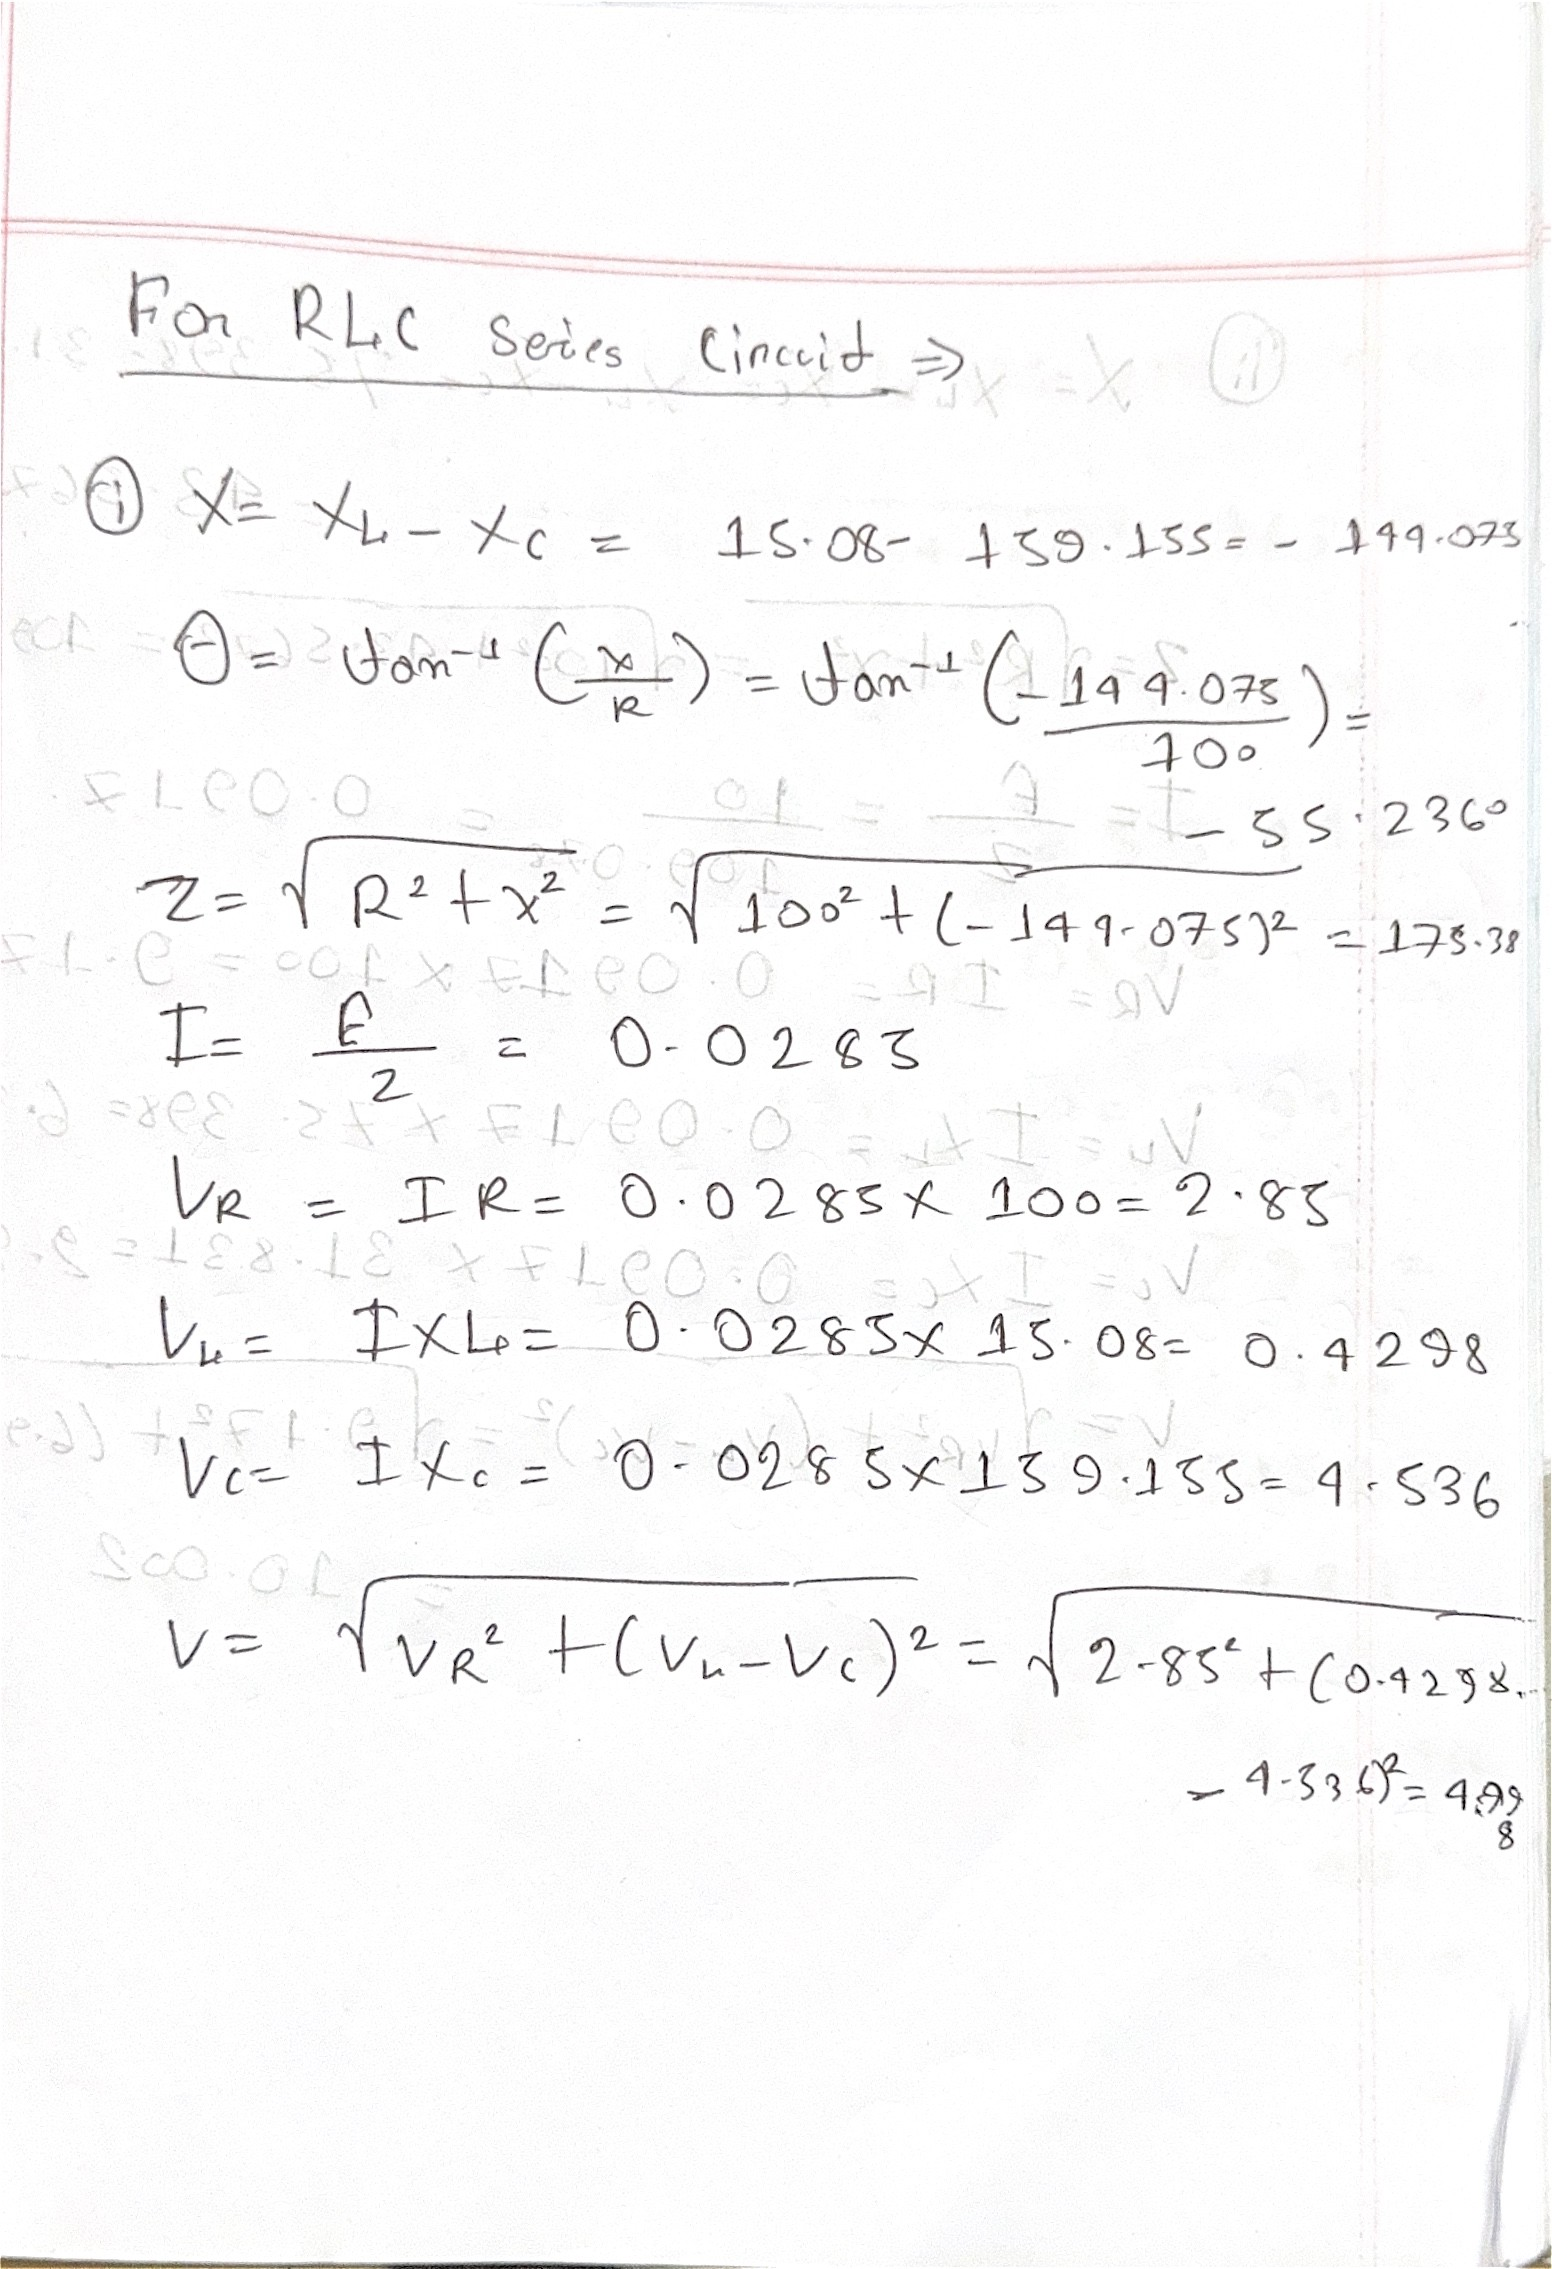 For RLC Series Circuit ⇒
(i) X = XL - XC = 15.08 - 159.155 = - 144.075
θ = tan⁻¹ (X/R) = tan⁻¹ (-144.075/100) =
- 55.236°
Z = √(R² + X²) = √(100² + (-144.075)²) = 175.38
I = E/Z = 0.0285
VR = IR = 0.0285 × 100 = 2.85
VL = IXL = 0.0285 × 15.08 = 0.4298
VC = IXC = 0.0285 × 159.155 = 4.536
V = √(VR² + (VL - VC)²) = √(2.85² + (0.4298
- 4.536)²) = 4.998